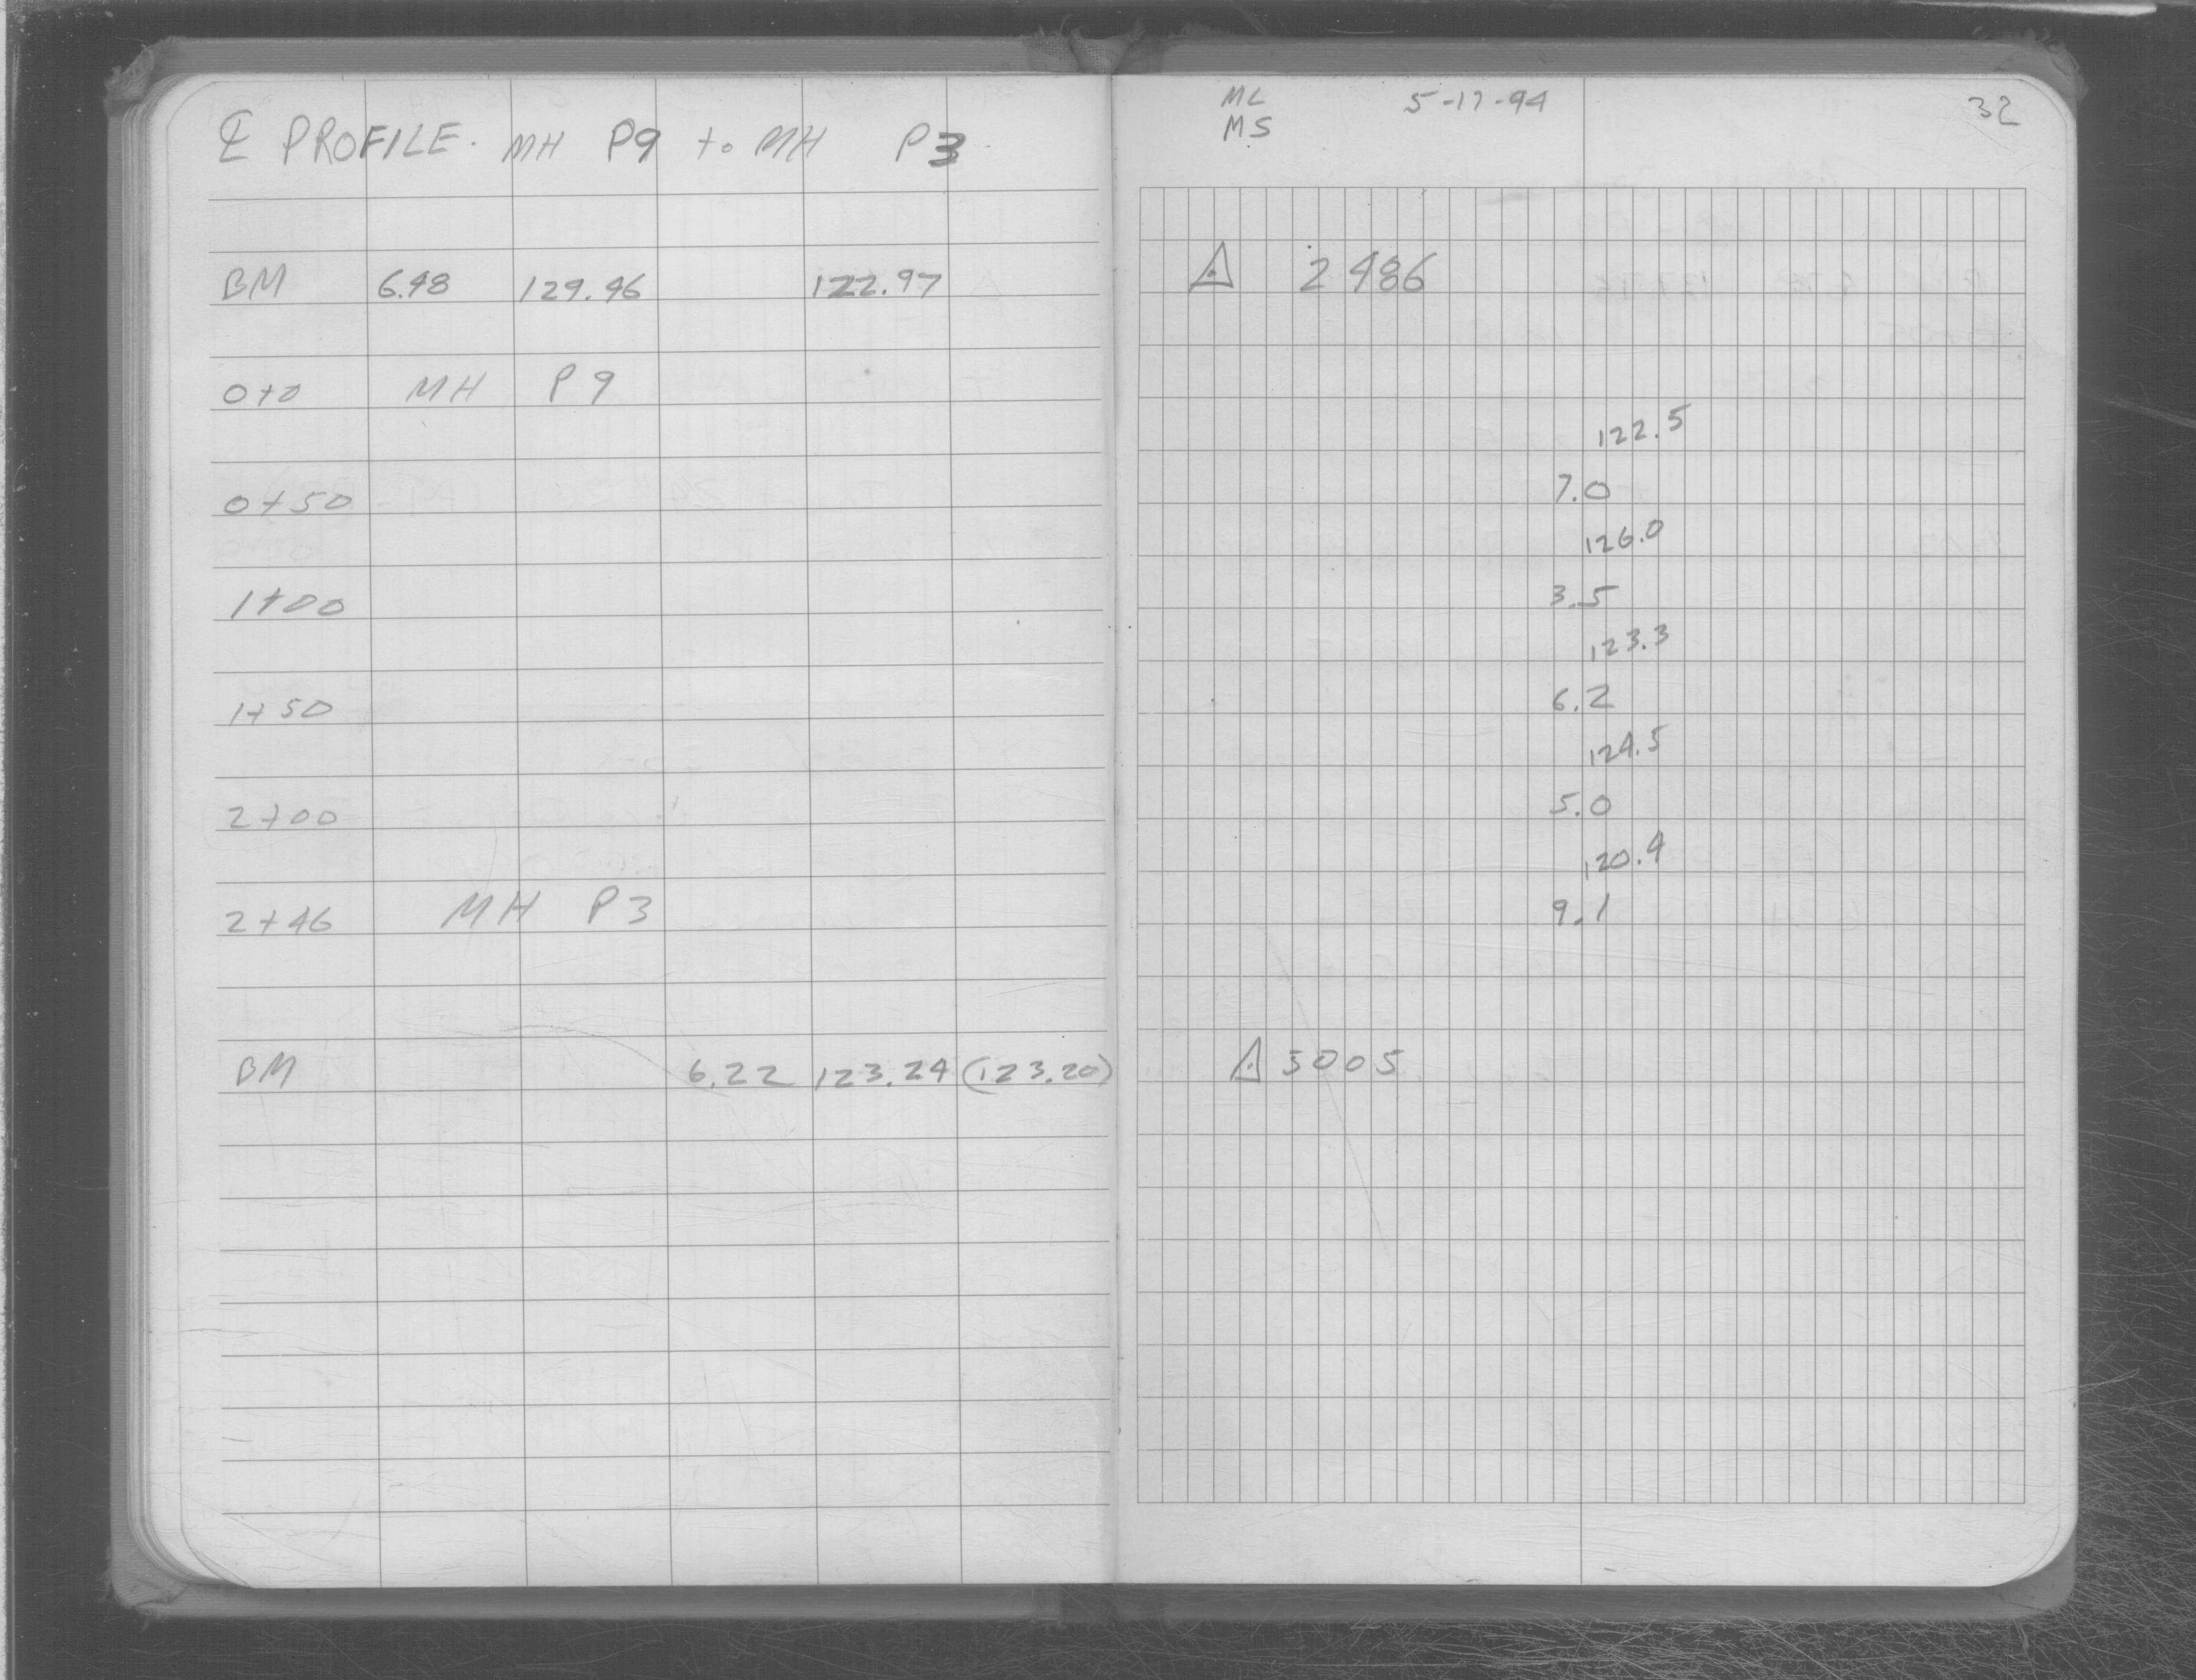 ℄ PROFILE. MH P9 to MH P3
BM 6.48 129.46 122.97
0+0 MH P9
0+50
1+00
1+50
2+00
2+46 MH P3
BM 6.22 123.24 (123.20)
ML 5-17-94 32
MS
△ 2486
122.5
7.0
126.0
3.5
123.3
6.2
124.5
5.0
120.4
9.1
△ 5005